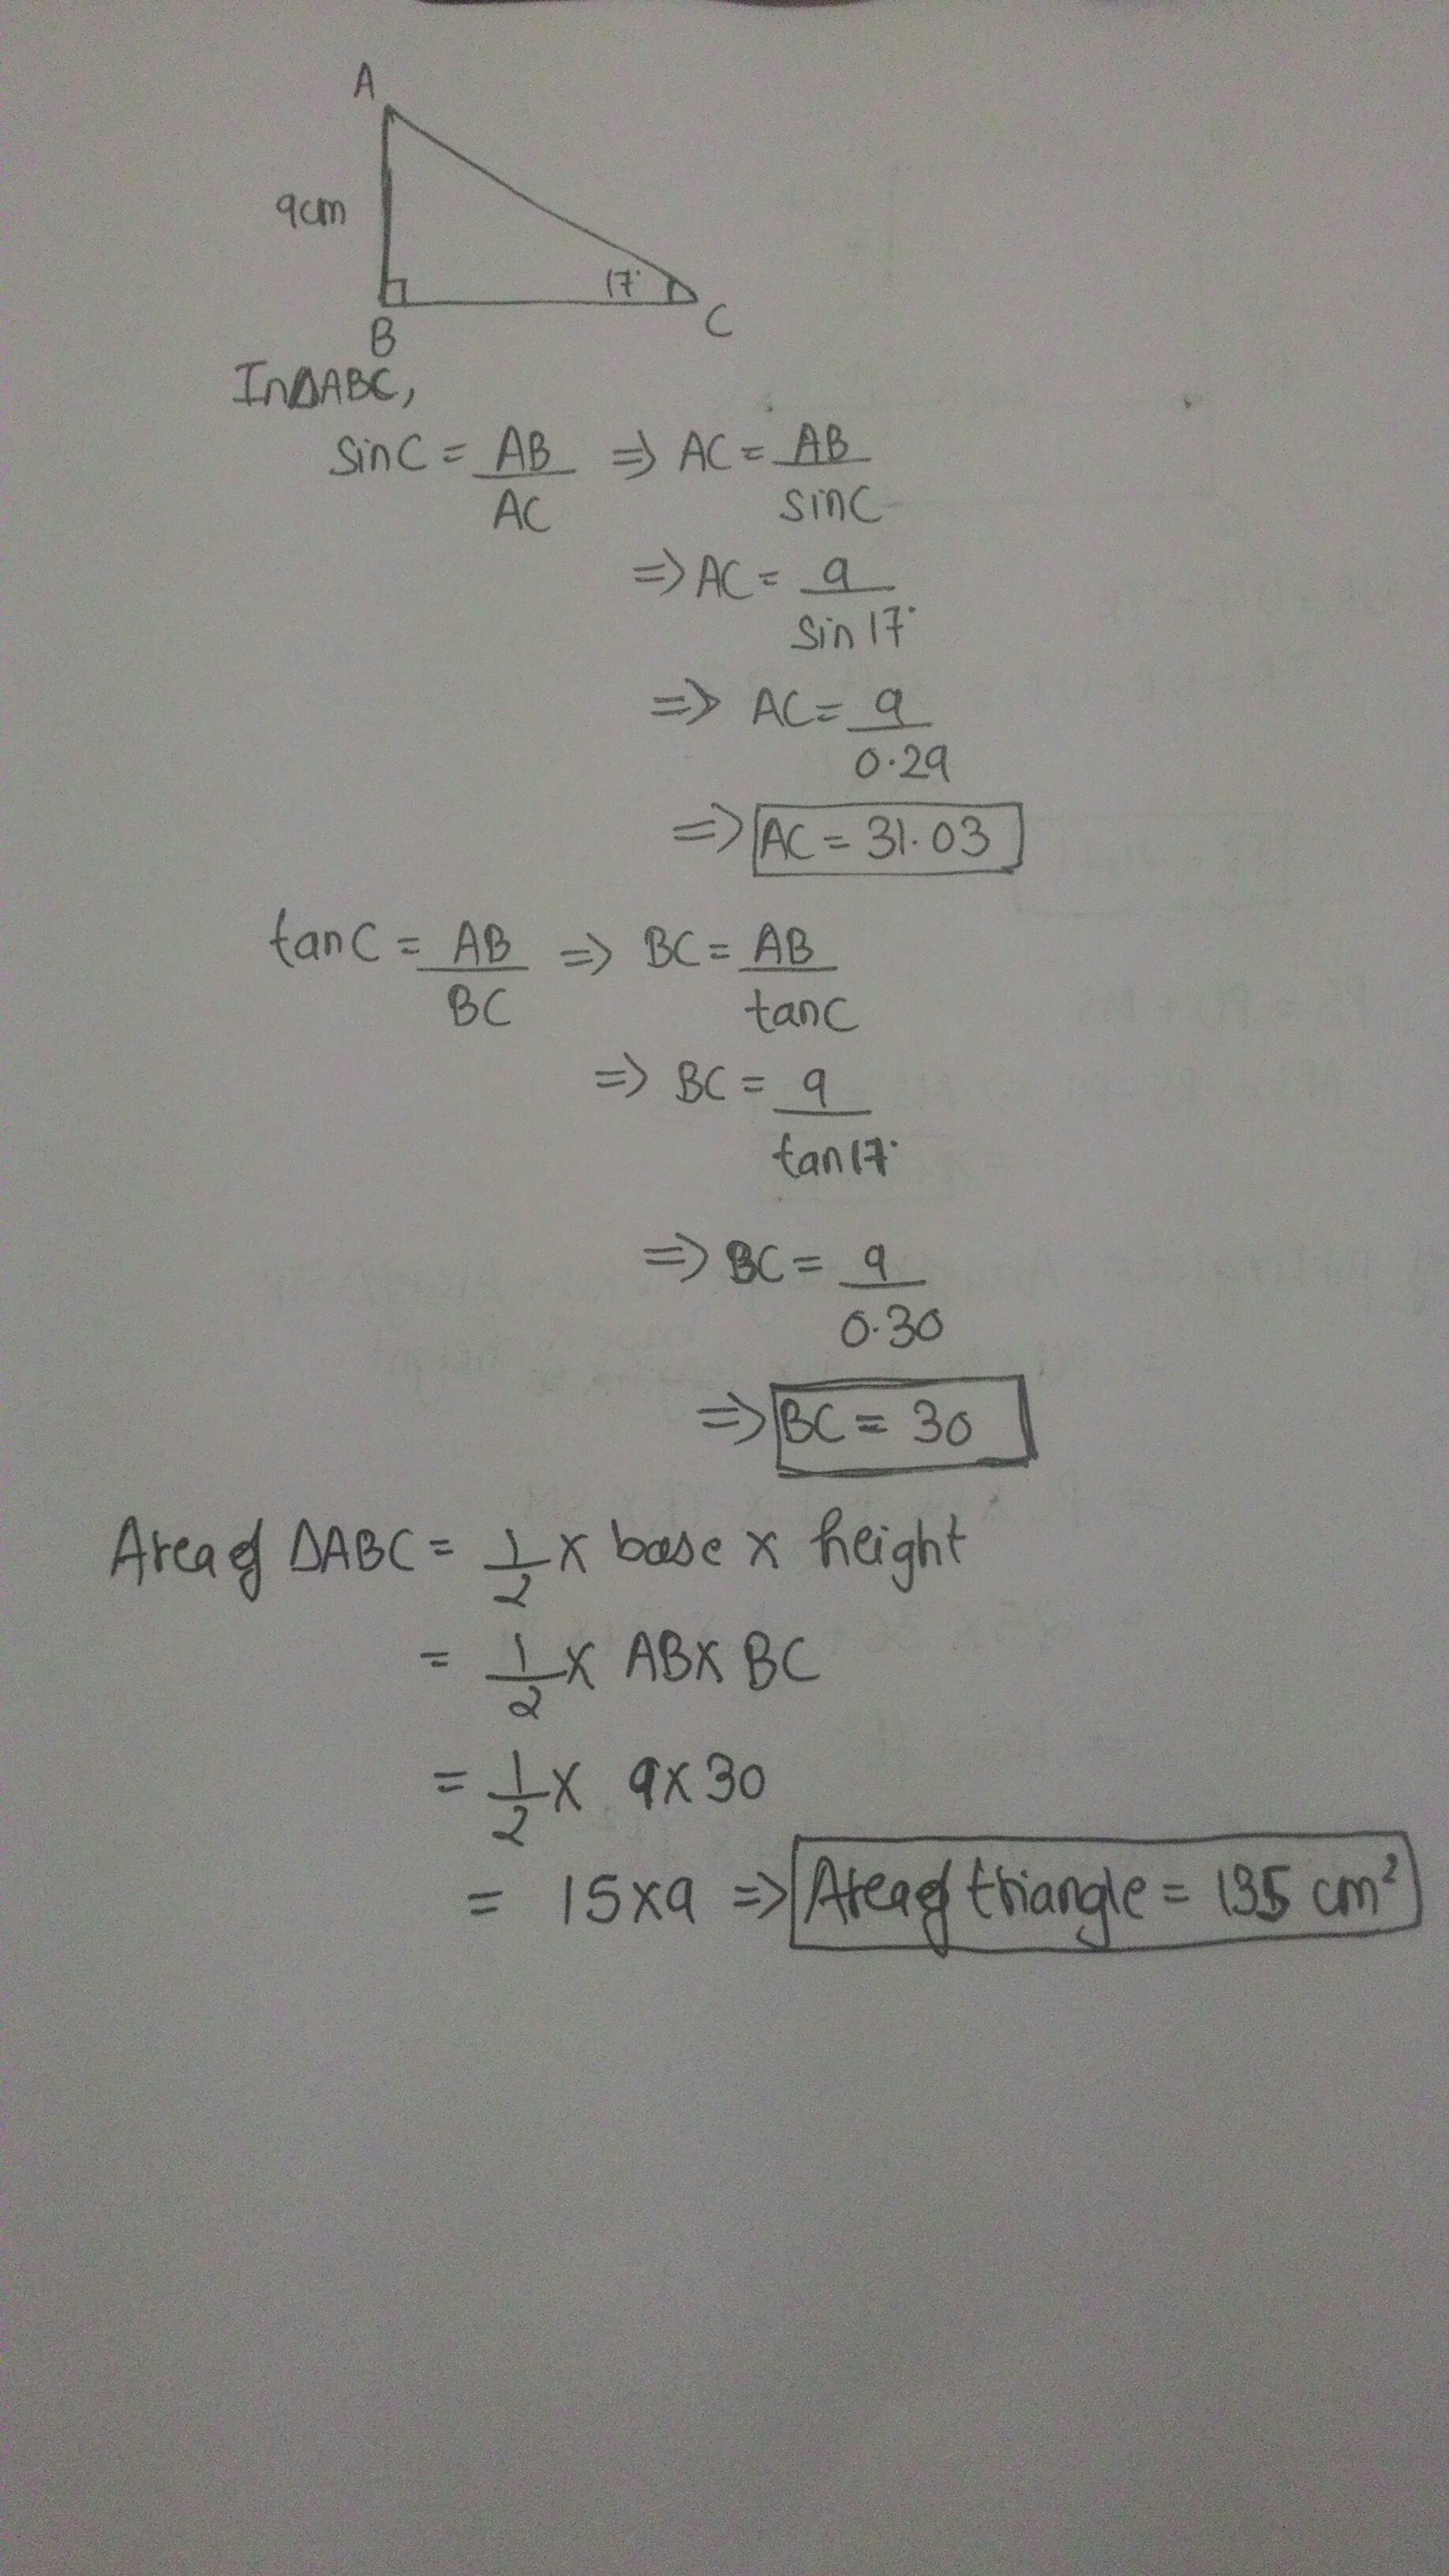 A
9cm
17°
B
C
In△ABC,
sinC = AB/AC ⇒ AC = AB/sinC
⇒ AC = 9/sin17°
⇒ AC = 9/0.29
⇒ AC = 31.03
tanC = AB/BC ⇒ BC = AB/tanC
⇒ BC = 9/tan17°
⇒ BC = 9/0.30
⇒ BC = 30
Area of △ABC = 1/2 x base x height
= 1/2 x AB x BC
= 1/2 x 9 x 30
= 15 x 9 ⇒ Area of triangle = 135 cm²